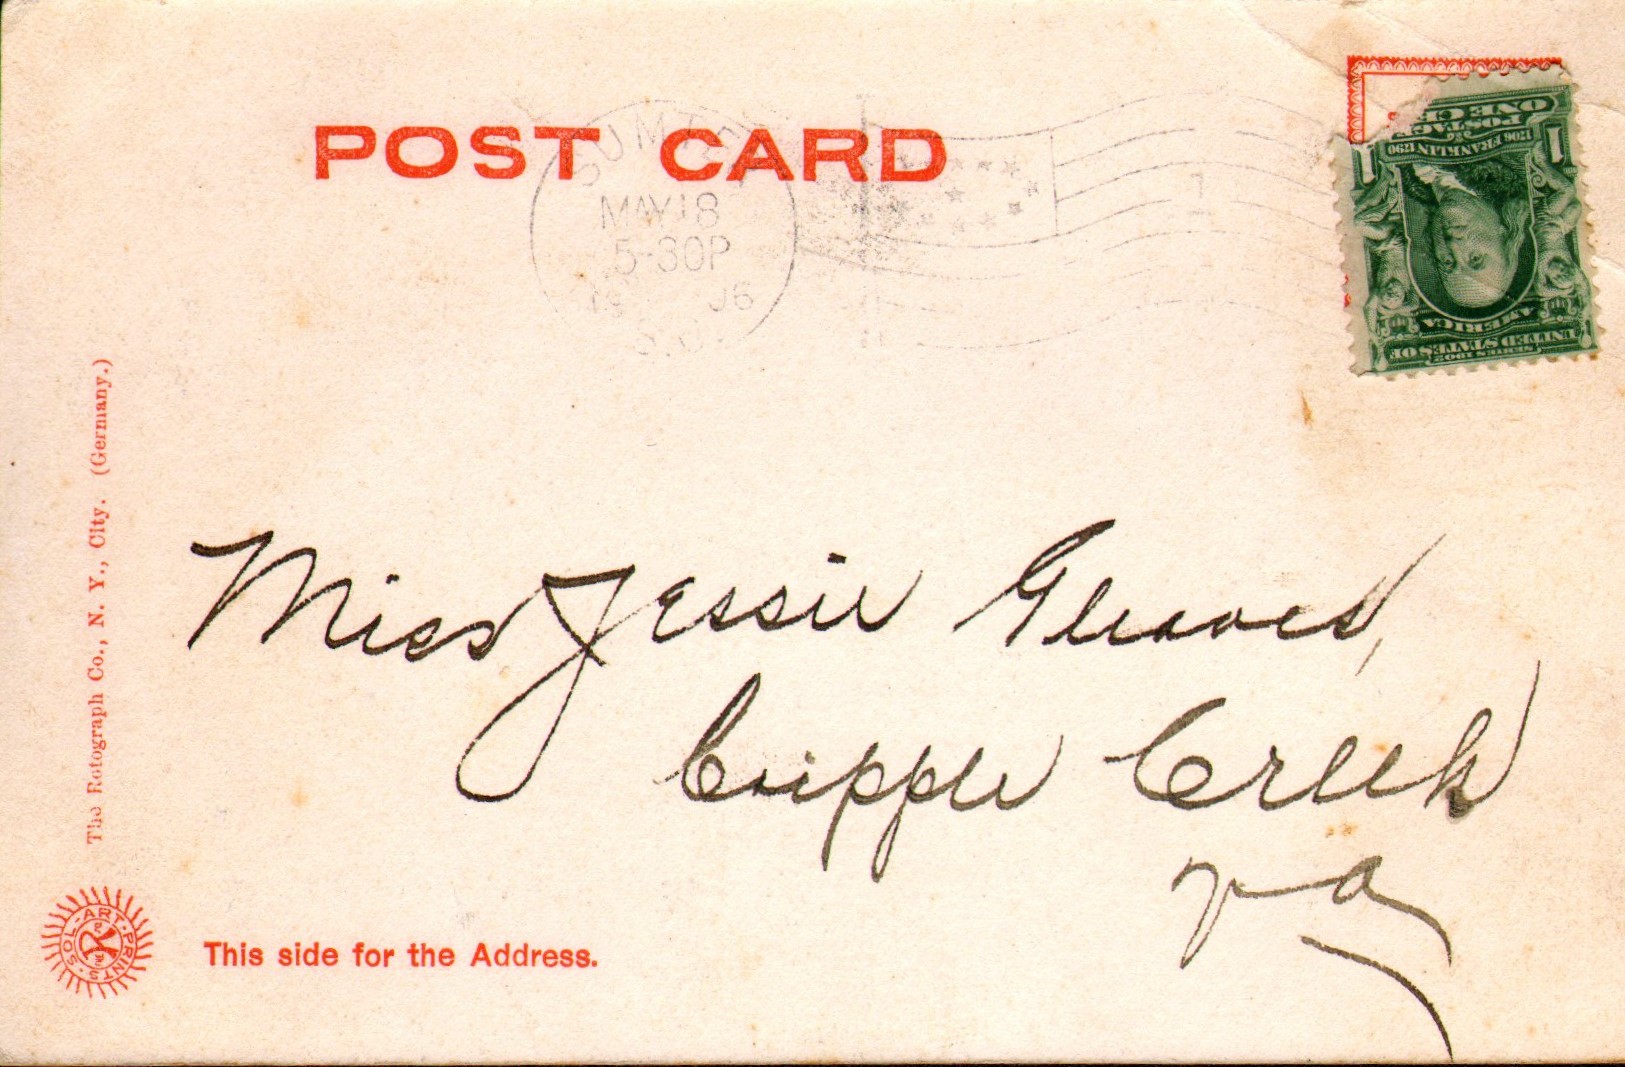 POST CARD
SUMTER
MAY 18
5-30P
1906
S.C.
SERIES 1902
UNITED STATES OF
AMERICA
1706 FRANKLIN 1790
POSTAGE
ONE CENT
1 1
Miss Jessie Gleaves,
Cripple Creek
Va
The Rotograph Co., N. Y., City. (Germany.)
SOL-ART-PRINTS
This side for the Address.